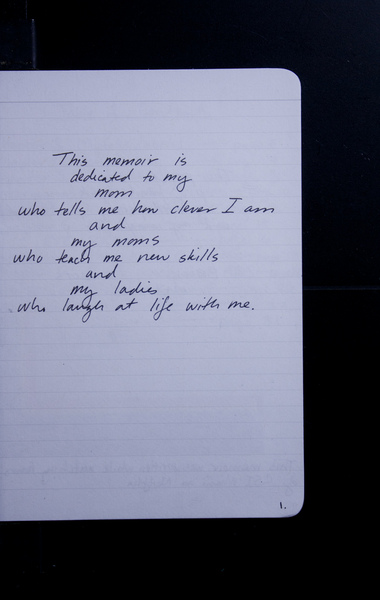 This memoir is
dedicated to my
mom
who tells me how clever I am
and
my moms
who teach me new skills
and
my ladies
who laugh at life with me.
1.